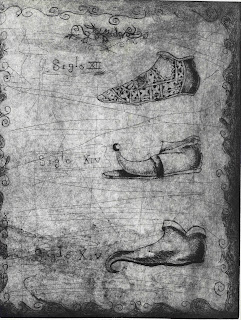 Siglo XII
Siglo XIV
Siglo XIV